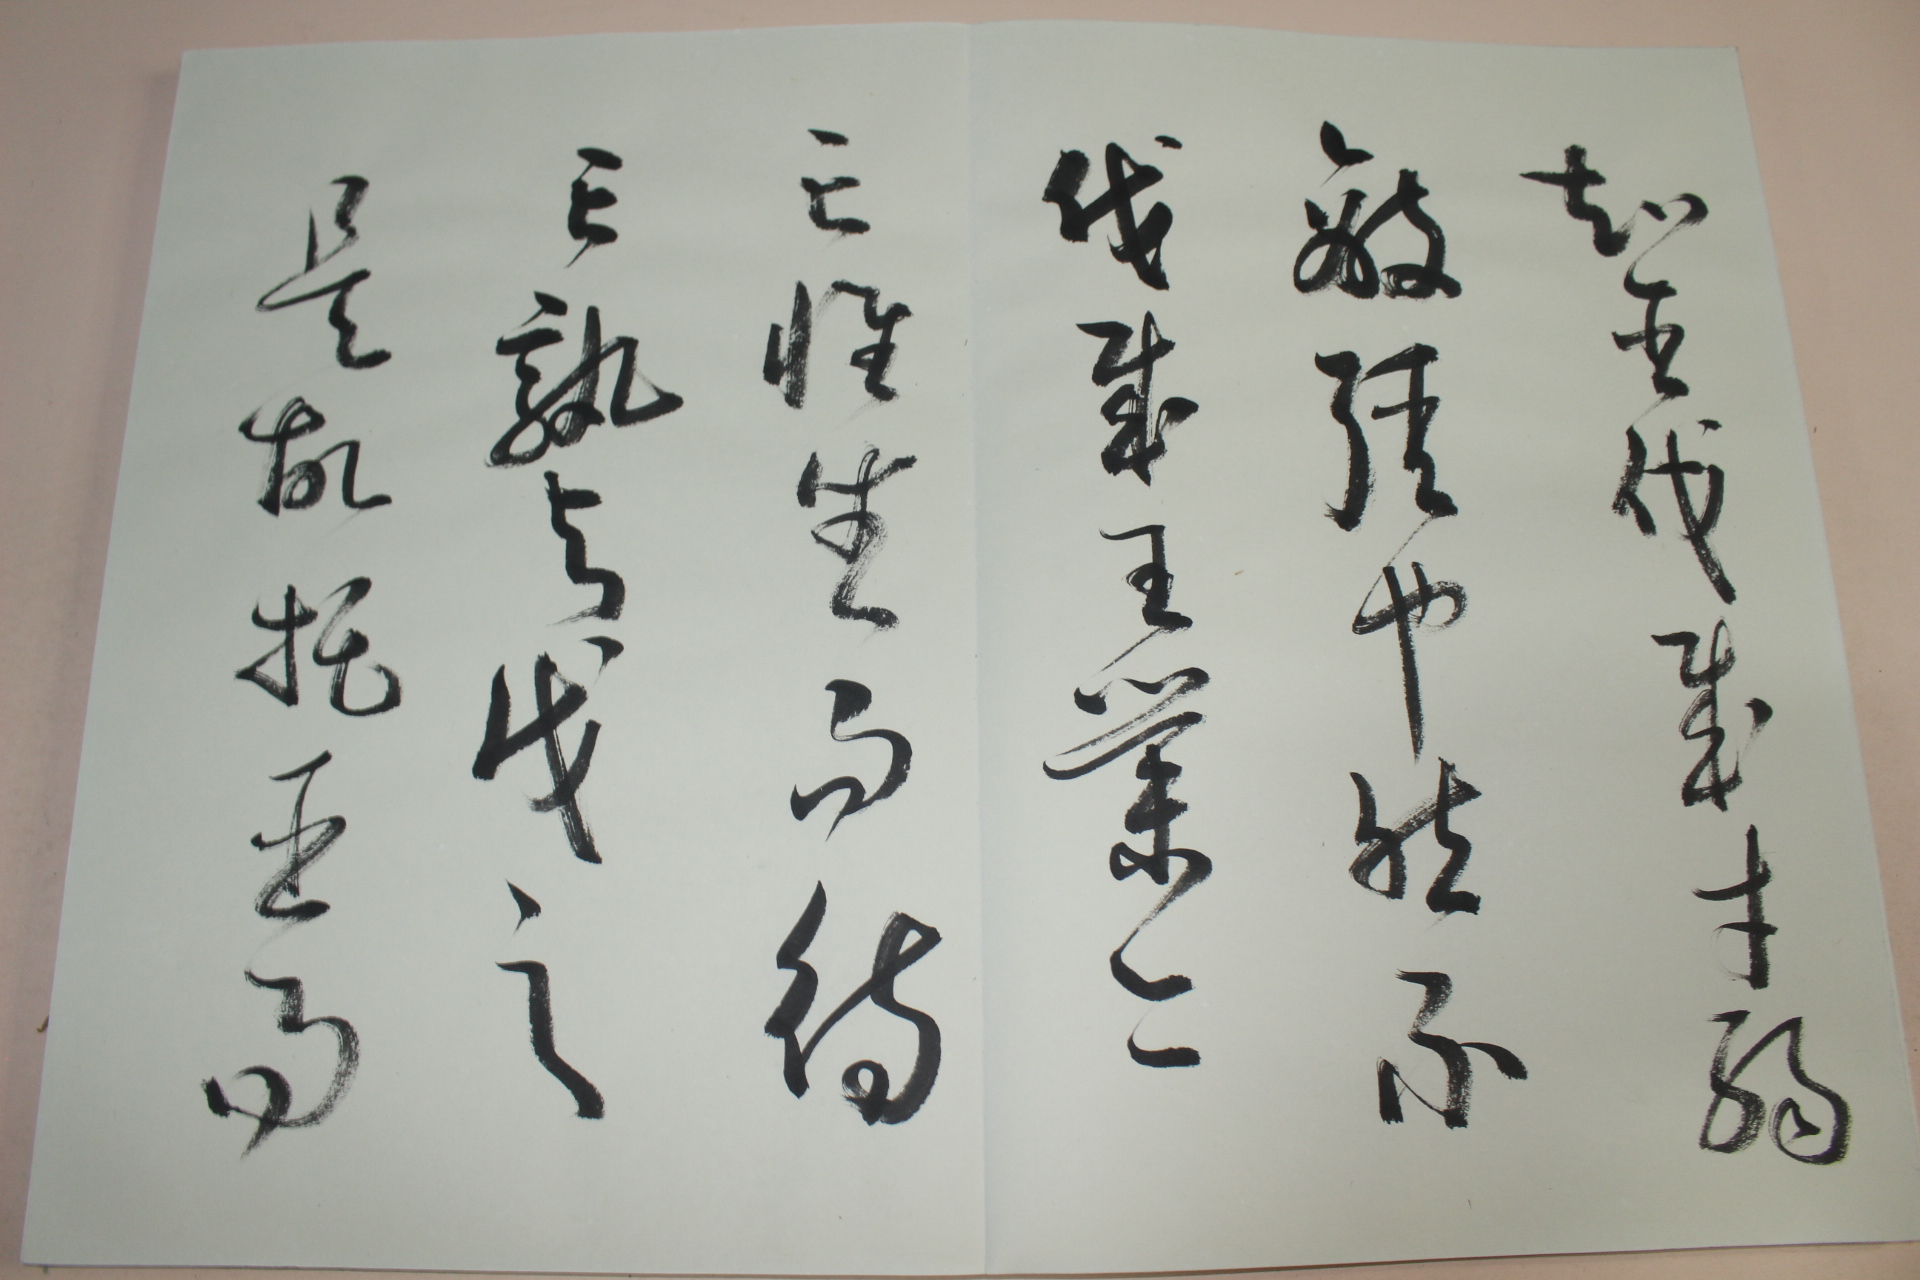 知臣伐賊才弱
敵強也然不
伐賊王業亦
亡惟坐而待
亡孰與伐之
是故托臣而